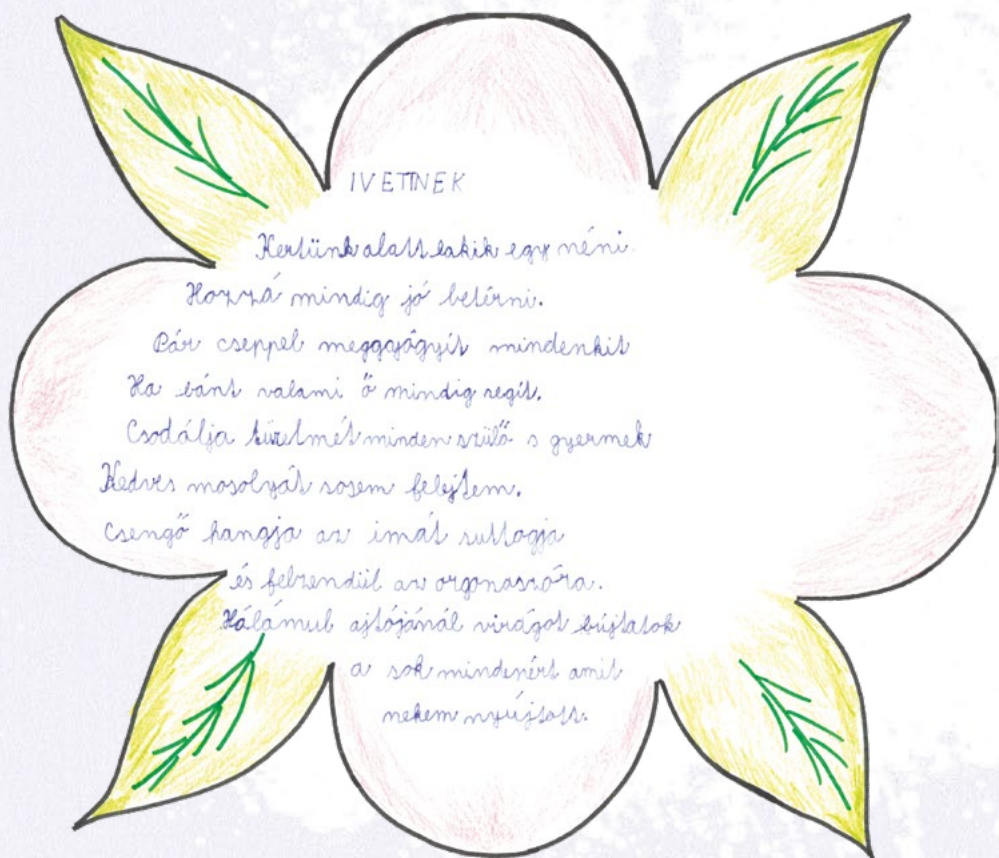 IVETTNEK
Kertünk alatt lakik egy néni.
Hozzá mindig jó betérni.
Pár cseppel meggyógyít mindenkit
Ha bánt valami ő mindig segít.
Csodálja türelmét minden szülő s gyermek
Kedves mosolyát sosem felejtem.
Csengő hangja az imát suttogja
és felzendül az orgonaszóra.
Hálámul ajtójánál virágot bújtatok
a sok mindenért amit
nekem nyújtott.